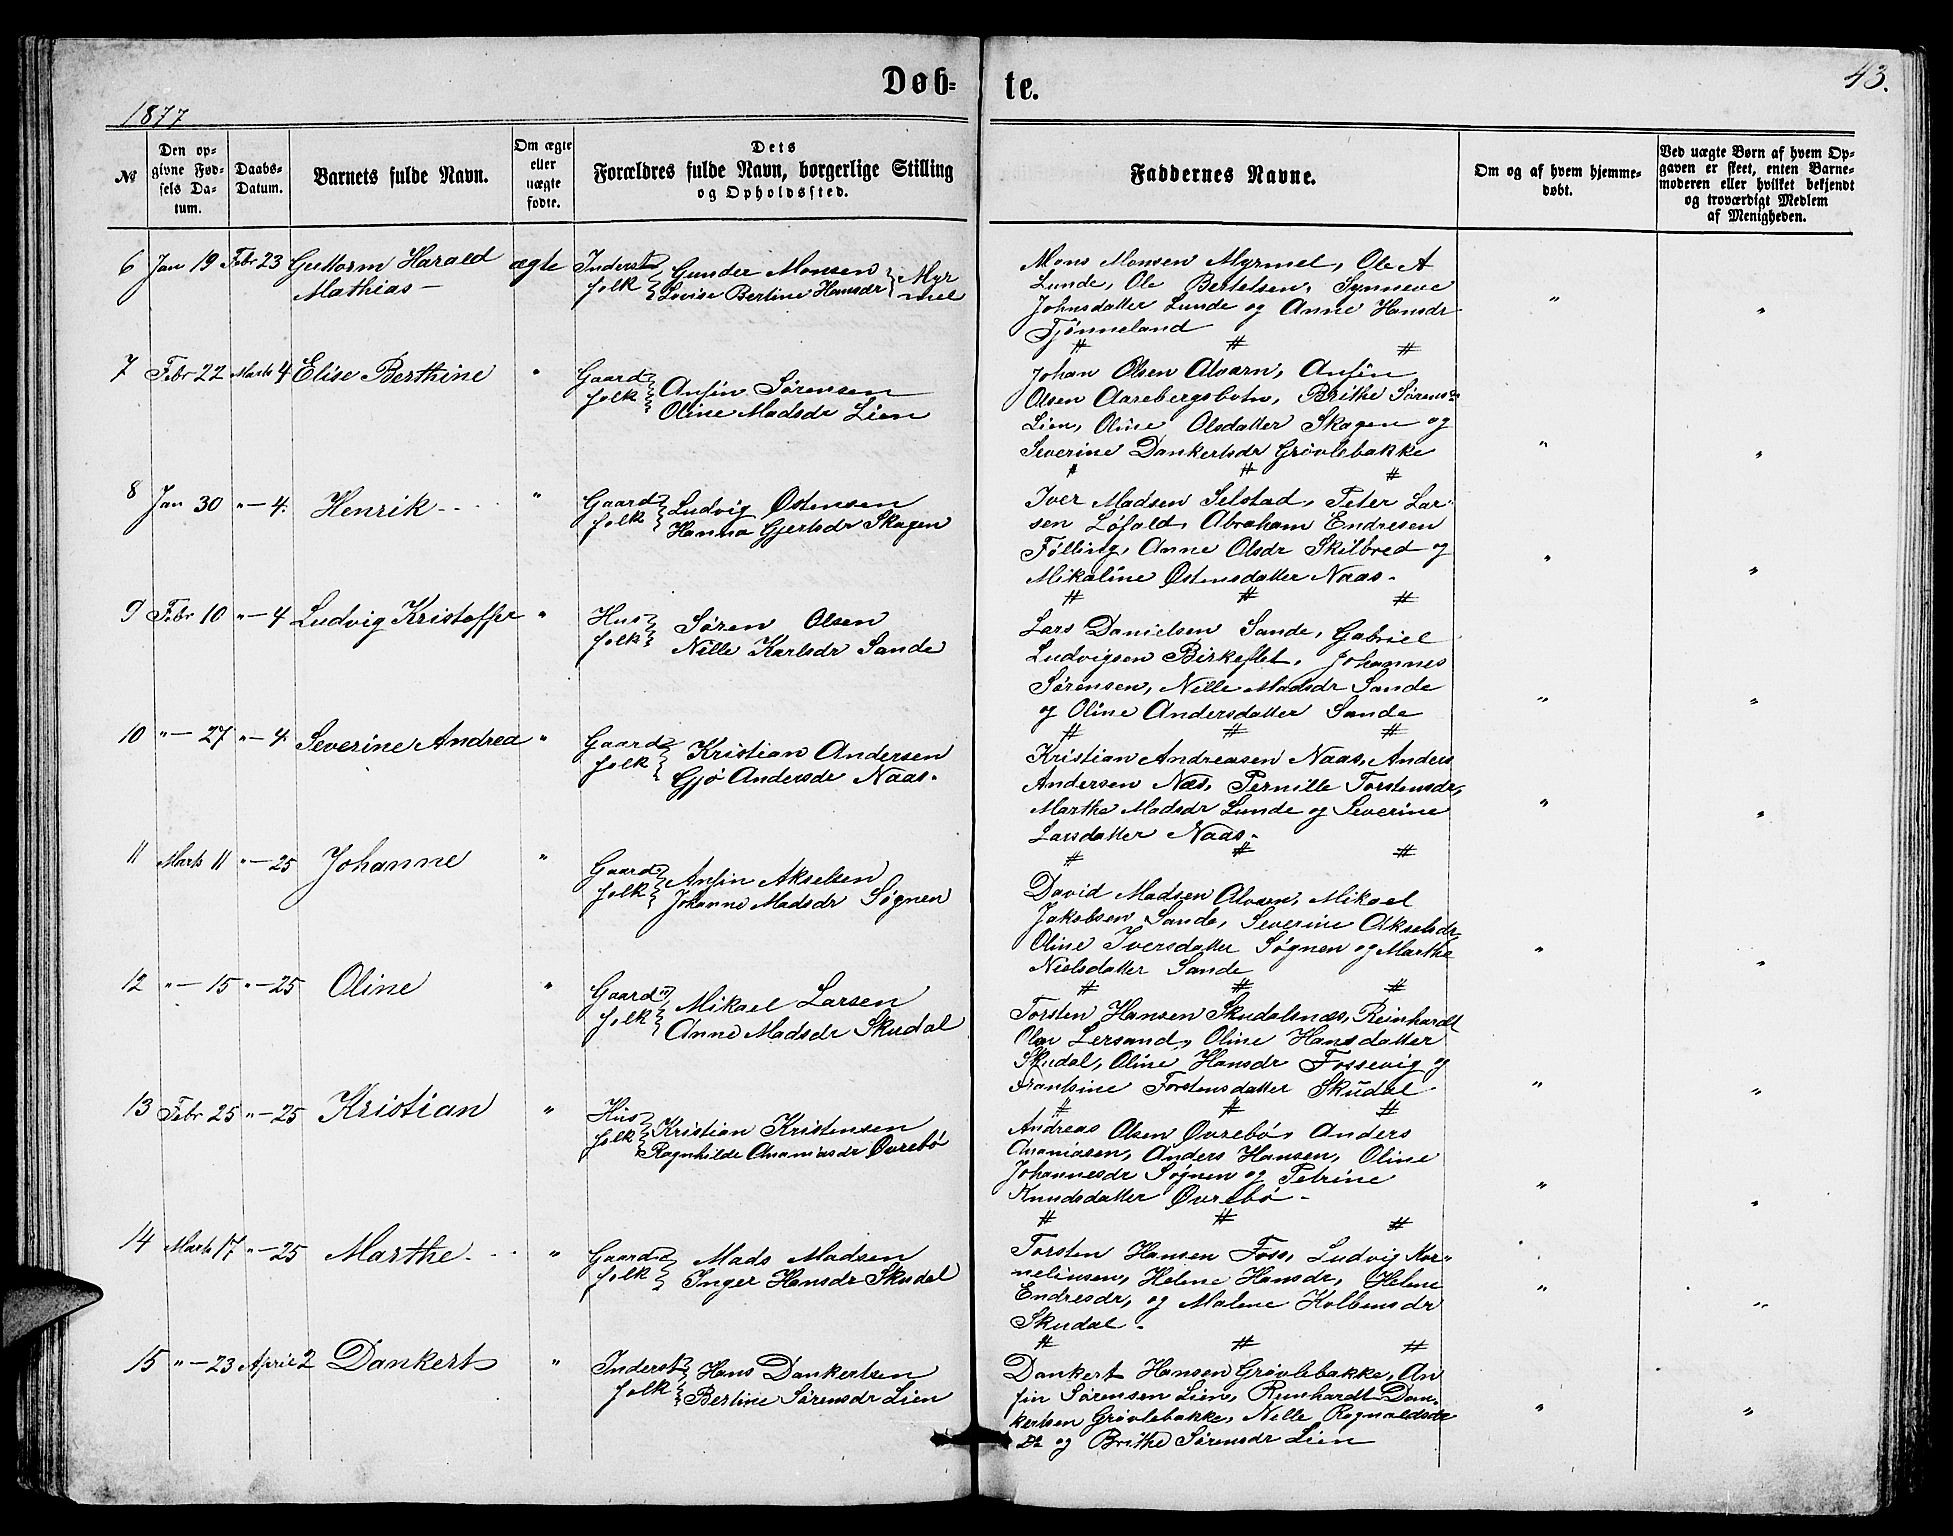 Døb- te.
43.
1877
№
Den op-
givne Fød-
sels Da-
tum.
Daabs-
Datum.
Barnets fulde Navn.
Om ægte
eller
uægte
fødte.
Dets
Forældres fulde Navn, borgerlige Stilling
og Opholdssted.
Faddernes Navne.
Om og af hvem hjemme-
døbt.
Ved uægte Børn af hvem Op-
gaven er skeet, enten Barne-
moderen eller hvilket bekjendt
og troværdigt Medlem
af Menigheden.
6 Jan 19 Febr 23 Guttorm Harald
Mathias —
ægte
Inderst
folk
Gunder Monsen
Lovise Bertine Hansdr
Myr
mel
Mons Monsen Myrmel, Ole A
Lunde, Ole Bertelsen, Synneve
Johnsdatter Lunde og Anne Hansdr
Tjønneland
" "
# # #
7 Febr 22 Marts 4 Elise Berthine "
Gaard
folk
Ansin Sørensen
Oline Madsdr Lien
Johan Olsen Alvarn, Ansin
Olsen Aarebergsbotn, Brithe Sørensdr
Lien, Oline Olsdatter Skagen og
Severine Dankertsdr Grøvlebakke
" "
# # #
8 Jan 30 " — 4. Henrik - - - "
Gaard
folk
Ludvig Østensen
Hanna Gjertsdr Skagen
Iver Madsen Selstad, Peter Lar-
sen Løfald, Abraham Endresen
Følling, Anne Olsdr Skilbred og
Mikaline Østensdatter Naas.
" "
# # #
9 Febr 10 " — 4 Ludvig Kristoffer "
Hus
folk
Søren Olsen
Nille Karlsdr Sande
Lars Danielsen Sande, Gabriel
Ludvigsen Birkeflet, Johannes
Sørensen, Nille Madsdr Sande
og Oline Andersdatter Sande
" "
# # #
10 " — 27 " — 4. Severine Andrea "
Gaard
folk
Kristian Andersen
Gjø Andersdr Naas.
Kristian Andreasen Naas, Anders
Andersen Næs, Pernille Torstensdr,
Marthe Madsdr Lunde og Severine
Larsdatter Naas.
" "
# # #
11 Marts 11 " — 25 Johanne "
Gaard
folk
Ansin Akselsen
Johanne Madsdr Søgnen
David Madsen Alvarn, Mikael
Jakobsen Sande, Severine Akselsdr,
Oline Iversdatter Søgnen og Marthe
Nielsdatter Sande
" "
# # #
12 " — 15 " — 25 Oline "
Gaard
folk
Mikael Larsen
Anne Madsdr Skudal
Torsten Hansen Skudalsnæs, Reinhardt
Olsen Lersand, Oline Hansdatter
Skudal, Oline Hansdr Fossevig og
Frantsine Torstensdatter Skudal
" "
# # #
13 Febr 25 " — 25 Kristian "
Hus
folk
Kristian Kristensen
Ragnhilde Ananiasdr Øvrebø
Andreas Olsen Øvrebø, Anders
Ananiasen, Anders Hansen, Oline
Johannesdr Søgnen og Petrine
Knudsdatter Øvrebø —
" "
# # #
14 Marts 17 " — 25 Marthe - - - "
Gaard
folk
Mads Madsen
Inger Hansdr Skudal
Torsten Hansen Foss, Ludvig Kor-
neliusen, Helene Hansdr, Helene
Endresdr, og Malene Kolbensdr
Skudal.
" "
# # #
15 " — 23 April 2 Dankert "
Inderst
folk
Hans Dankertsen
Bertine Sørensdr Lien
Dankert Hansen Grøvlebakke, An
sin Sørensen Lien, Reinhardt Dan-
kertsen Grøvlebakke, Nille Rognaldsdr
Do og Brithe Sørensdr Lien
" "